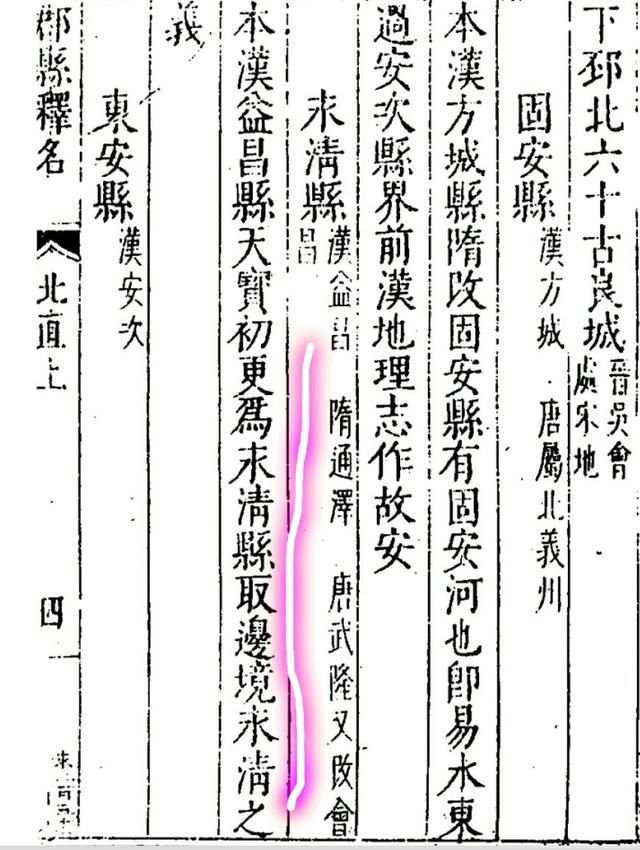 下邳北六十古良城晉吳會處宋地
固安縣漢方城 唐屬北義州
本漢方城縣隋改固安縣有固安河也卽易水東
過安次縣界前漢地理志作故安
永清縣漢益昌 隋通澤 唐武隆又改會昌
本漢益昌縣天寶初更爲永清縣取邊境永清之
義
東安縣漢安次
郡縣釋名 北直上 四